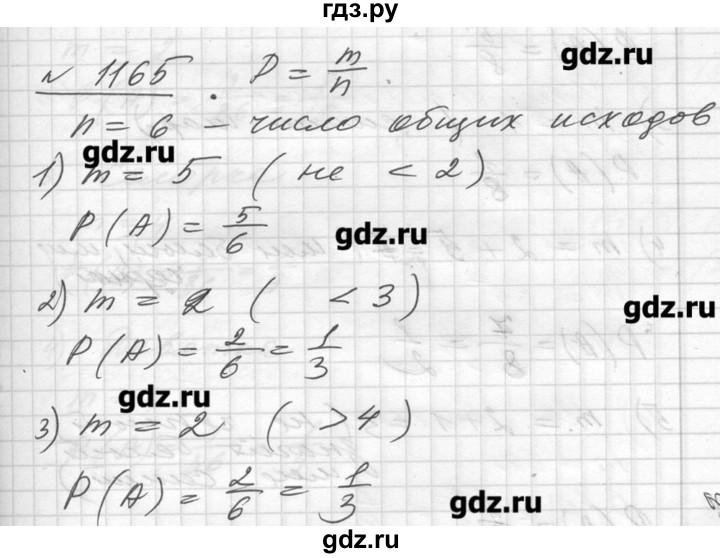 гдз.ру
№ 1165. P = m/n.
gdz.ru
n = 6 – число общих исходов
gdz.ru
1) m = 5 ( не < 2)
P(A) = 5/6
gdz.ru
2) m = 2 ( < 3)
gdz.ru
P(A) = 2/6 = 1/3
gdz.ru
3) m = 2 ( > 4)
P(A) = 2/6 = 1/3
gdz.ru
gdz.ru